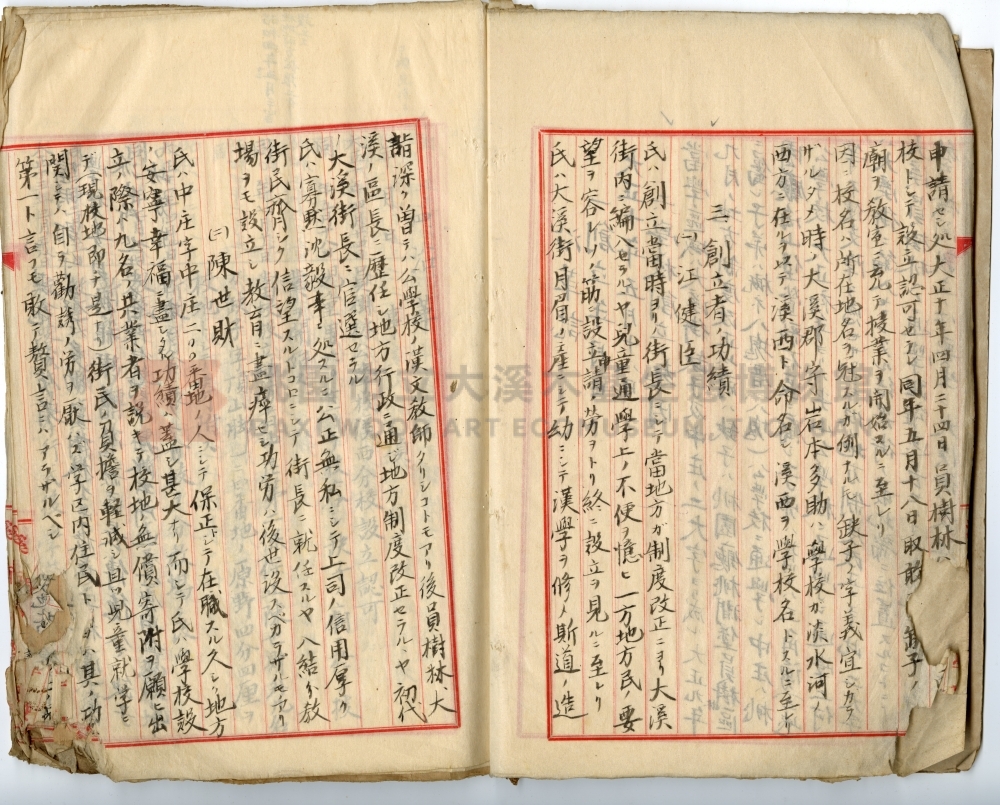 申請セシ処大正十年四月二十四日員樹林
校トシテ設立認可セラレ同年五月十八日取敢
廟ヲ教室ニ充テ授業ヲ開始スルニ至レリ
因ニ校名ハ所在地名ヲ冠スルガ例ナルモ缺子ノ字義宜シカラ
ザルタメ時ノ大溪郡守岩本多助ハ學校ガ淡水河ノ
西方ニ在ルヲ以テ溪西ト命名シ溪西ヲ學校名トスルニ至レリ
三、創立者ノ功績
(一)江健臣
氏ハ創立當時ヨリノ街長ニシテ當地方ガ制度改正ニヨリ大溪
街内ニ編入セラルヤ兒童通學上ノ不便ヲ憶ヒ一方地方民ノ要
望ヲ容レソノ筋ニ設立申請ノ労ヲトリ終ニ設立ヲ見ルニ至レリ
氏ハ大溪街月眉ノ産ニシテ幼ニシテ漢學ヲ修メ斯道ノ造
詣深ク曽テハ公學校ノ漢文教師タリシコトモアリ後員樹林大
溪區長ニ歴任シ地方行政ニ通ジ地方制度改正セラルヤ初代
ノ大溪街長ニ官選セラル
氏ハ寡黙沈毅事ニ処スルニ公正無私ニシテ上司ノ信用厚ク
街民齊シク信望スルトコロニシテ街長ニ就任スルヤ八結分教
場ヲモ設立シ教育ニ盡瘁セシ功労ハ後世没スベカラザルモノアリ
(二)陳世財
氏ハ中庄字中庄二〇番地ノ人ニシテ保正トシテ在職スル久シク地方
ノ安寧幸福ニ盡シタル功績ハ蓋シ甚大ナリ而シテ氏ハ學校設
立ノ際ハ九名ノ共業者ヲ説キテ校地無償寄附ヲ願ヒ出
デ(現校地即チ是ナリ)街民ノ負擔ヲ軽減シ且ツ兒童就学ニ
関シテハ自ラ勧誘ノ労ヲ厭ハズ学区内住民トシテハ其ノ功
第一ト言フモ敢テ贅言ニハアラザルベシ